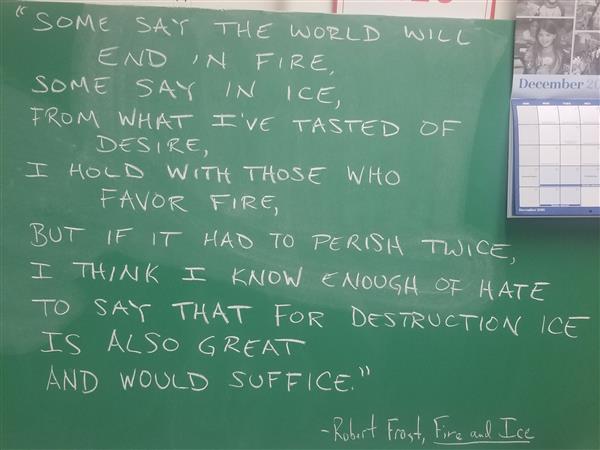 "SOME SAY THE WORLD WILL
END IN FIRE,
SOME SAY IN ICE,
FROM WHAT I'VE TASTED OF
DESIRE,
I HOLD WITH THOSE WHO
FAVOR FIRE,
BUT IF IT HAD TO PERISH TWICE,
I THINK I KNOW ENOUGH OF HATE
TO SAY THAT FOR DESTRUCTION ICE
IS ALSO GREAT
AND WOULD SUFFICE."
-Robert Frost, Fire and Ice
December 20